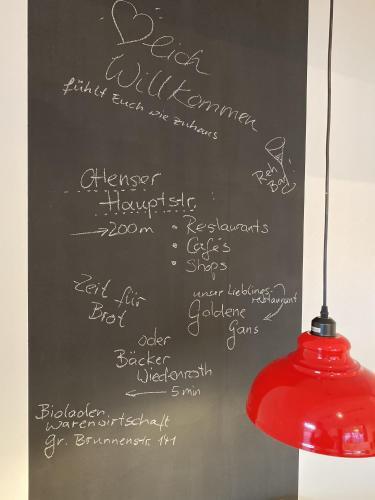 ♡lich
Willkommen
fühlt Euch wie Zuhaus
Reh
Bar
Ottenser
Hauptstr.
→200m • Restaurants
• Cafés
• Shops
Zeit für
Brot
unser Lieblings-
restaurant
Goldene
Gans
oder
Bäcker
Wiedenroth
← 5 min
Bioladen
warenwirtschaft
gr. Brunnenstr. 141